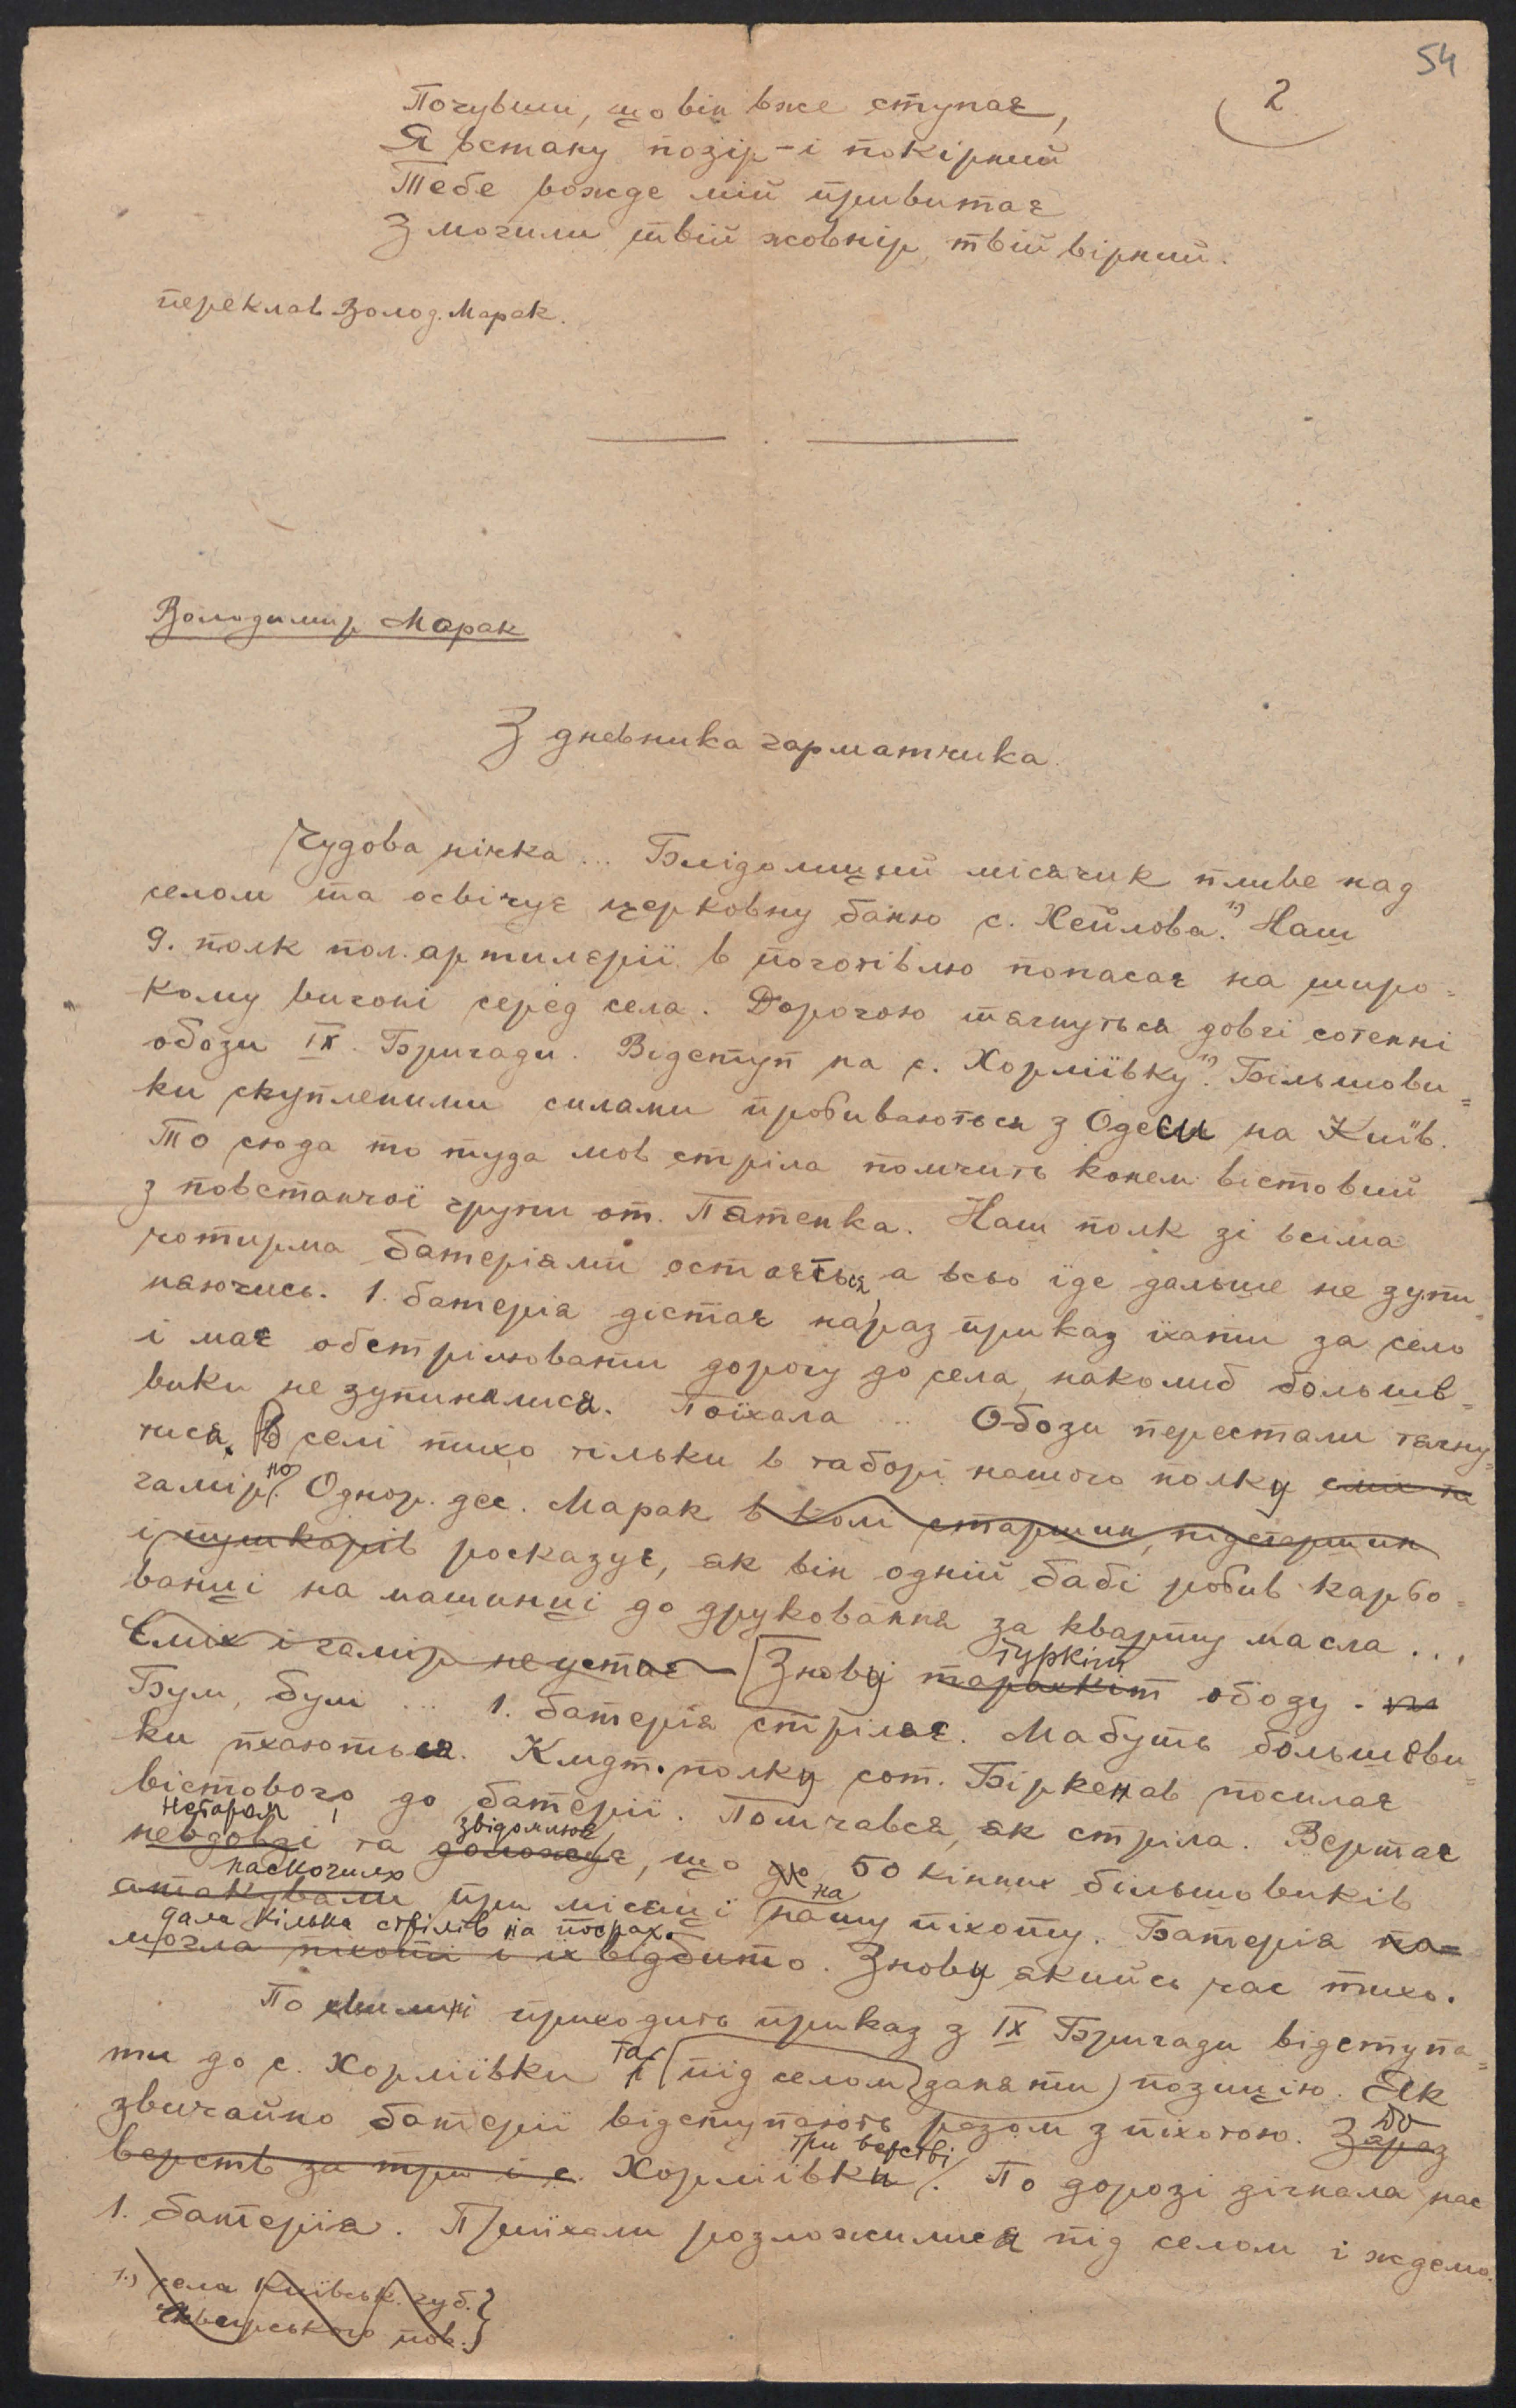 54
2
Почувши, що він вже ступає,
Я встану позір - і покірний
Тебе вожде мій привитає
З могили твій жовнір, твій вірний.
переклав Волод. Марак.
Володимир Марак
З дневника гарматчика.
Чудова нічка ... Блідолиций місячик пливе над
селом та освічує церковну баню с. Хейлова.¹⁾ Наш
9. полк пол. артилєрії в поготівлю попасає на широ=
кому вигоні серед села. Дорогою тягнуться довгі сотенні
обози IX. Бригади. Відступ на с. Хорліївку¹⁾. Більшови=
ки скупленими силами пробиваються з Одеси на Київ.
То сюда то туда мов стріла помчить конем вістовий
з повстанчої групи от. Патенка. Наш полк зі всіма
чотирма батеріями остається, а всьо їде дальше не зупи
няючись. 1. батерія дістає нараз приказ їхати за село
і має обстрілювати дорогу до села, наколиб больше=
вики не зупинялися. Поїхала ... Обози перестали тягну=
тися. В селі тихо тільки в таборі нашого полку сміх та
гамір. Однор. дес. Марак в колі старшин, підстаршин
і пушкарів росказує, як він одній бабі робив карбо=
ванці на машинці до друковання за кварту масла ...
Сміх і гамір не устає - Знову тарахкіт обозу.
гуркіт
Бум, бум ... 1. батерія стріляє. Мабуть большеви=
ки пхаються. Кмдт. полку сот. Біркенав посилає
вістового до батерії. Помчався, як стріла. Вертає
незабаром
звідомлює
невдовзі та доложує, що до 50 кінних більшовиків
наскочило
на
атакували при місяці нашу піхоту. Батерія по=
дала кілька стрілів на пострах.
могла піхоті і їх відбито. Знову якийсь час тихо.
По хвилині приходить приказ з IX Бригади відступа=
ти до с. Хорліївки та під селом заняти позицію. Як
звичайно батерії відступають разом з піхотою. Зараз
До
три верстві
верств за три і с. Хорліївки. По дорозі дігнала нас
1. батерія. Приїхали розложилися під селом і ждемо.
1.) села Київськ. губ.}
Сквирського пов.}